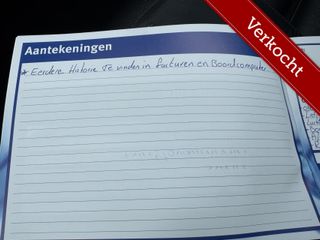 Verkocht
Aantekeningen
* Eerdere Historie te vinden in facturen en Boordcomputer